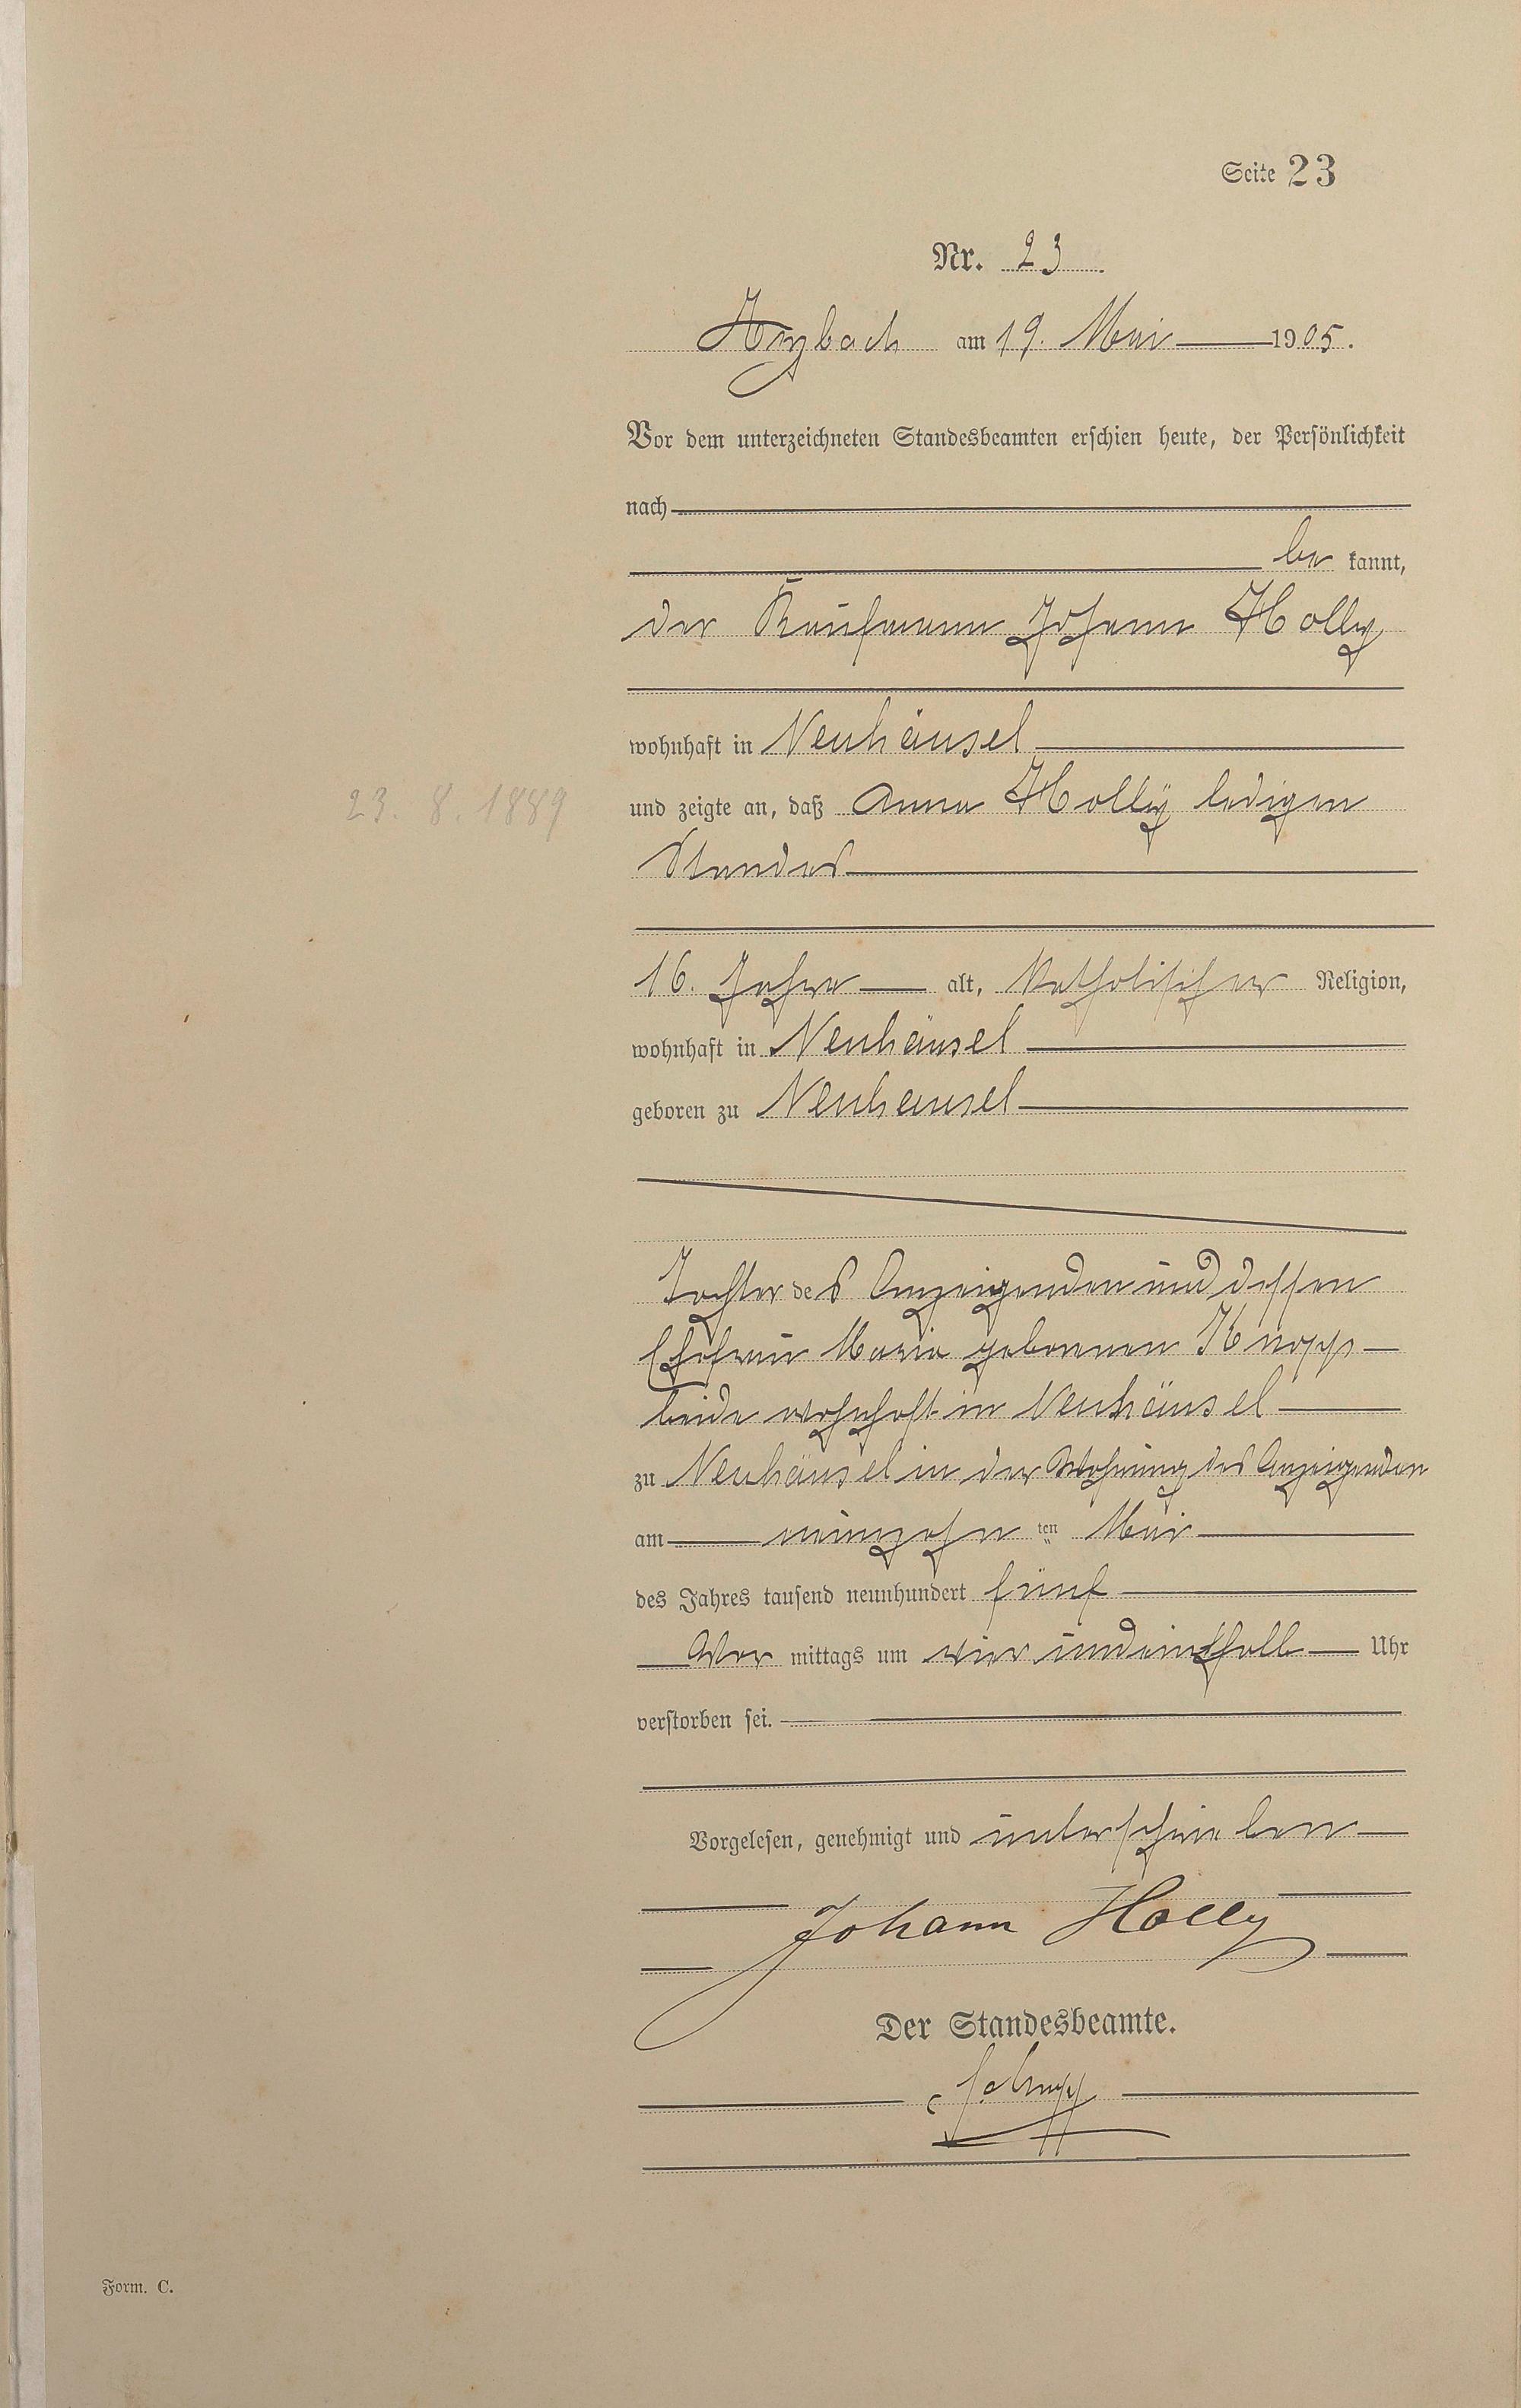 Seite 23
Nr. 23
Arzbach am 19. Mai 1905.
Vor dem unterzeichneten Standesbeamten erschien heute, der Persönlichkeit
nach
be kannt,
der Kaufmann Johann Holly
wohnhaft in Neuhäusel
23. 8. 1889
und zeigte an, daß Anna Holly ledigen
Standes
16. Jahre alt, katholischer Religion,
wohnhaft in Neuhäusel
geboren zu Neuhäusel
Tochter des Anzeigenden und dessen
Ehefrau Maria geborenen Knopp
beide wohnhaft in Neuhäusel
zu Neuhäusel in der Wohnung des Anzeigenden
am neunzehn ten Mai
des Jahres tausend neunhundert fünf
Vor mittags um vier undeinhalb Uhr
verstorben sei.
Vorgelesen, genehmigt und unterschrieben
Johann Holly
Der Standesbeamte.
Form. C.